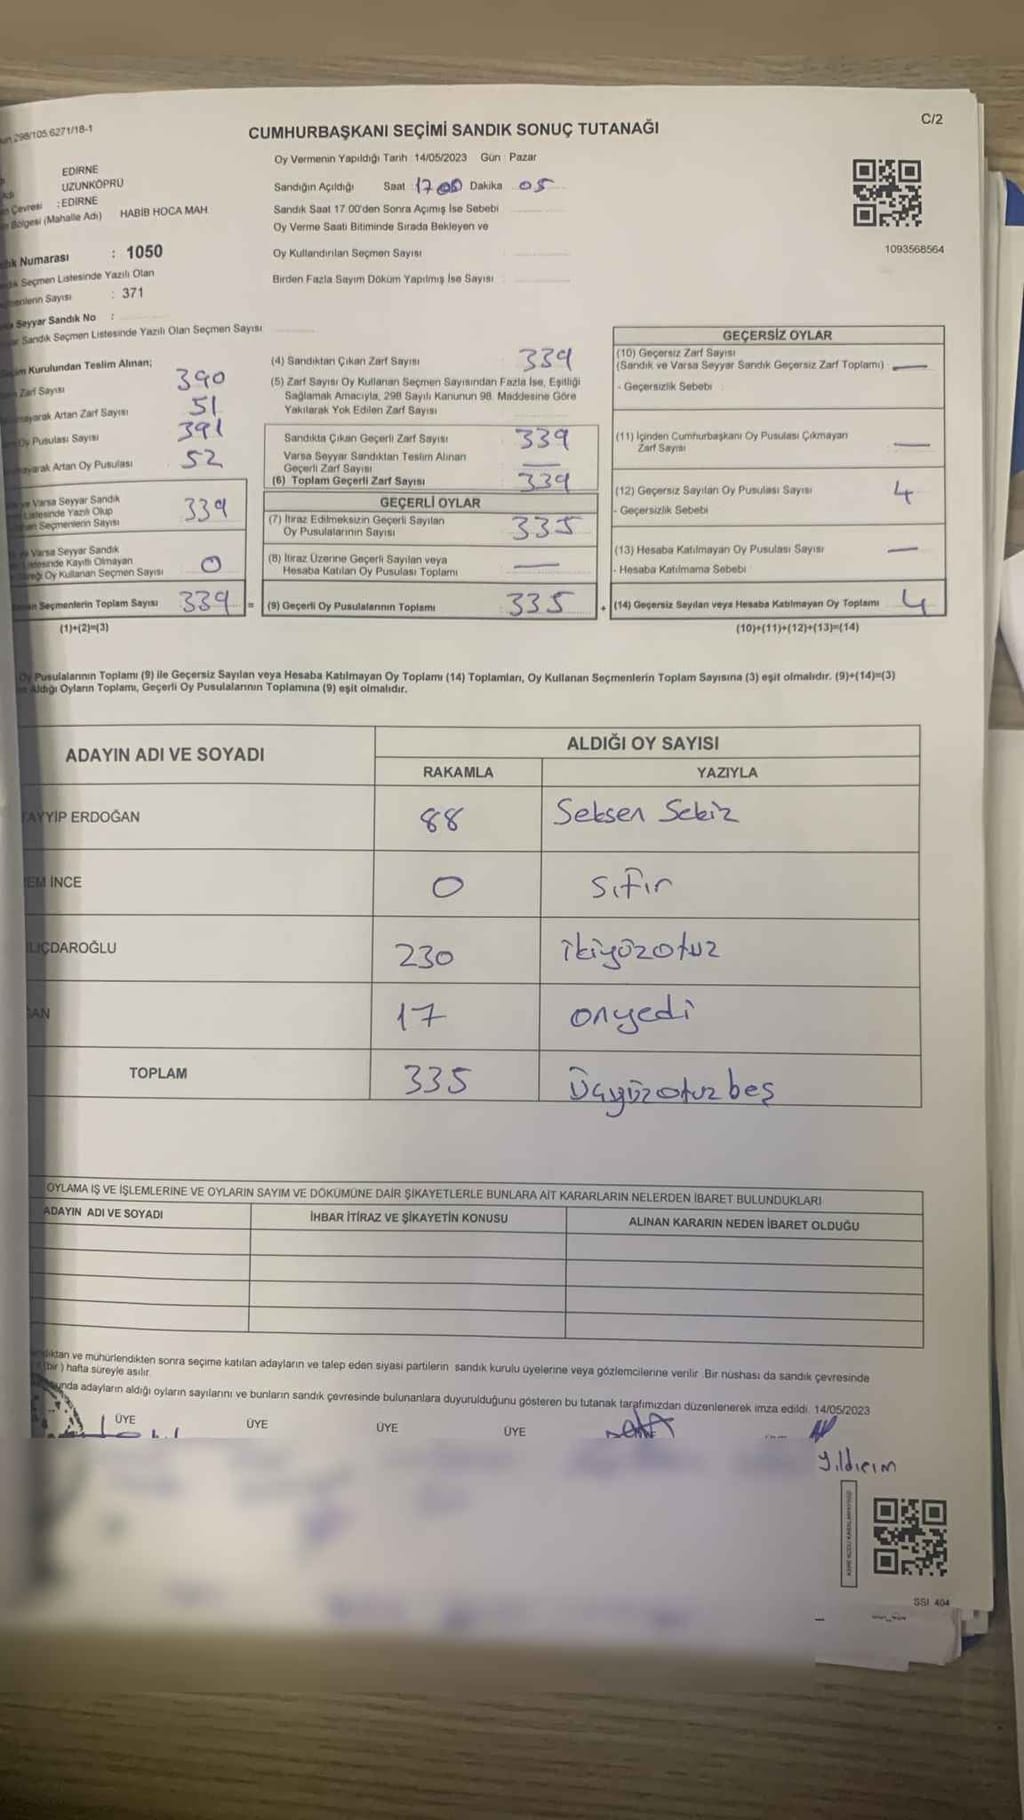 298/105.6271/18-1
C/2
CUMHURBAŞKANI SEÇİMİ SANDIK SONUÇ TUTANAĞI
EDİRNE
UZUNKÖPRÜ
Çevresi : EDİRNE
Bölgesi (Mahalle Adı) HABİB HOCA MAH
Numarası : 1050
Seçmen Listesinde Yazılı Olan
Sayısı : 371
Seyyar Sandık No :
Sandık Seçmen Listesinde Yazılı Olan Seçmen Sayısı
Oy Vermenin Yapıldığı Tarih : 14/05/2023 Gün : Pazar
Sandığın Açıldığı Saat 17 00 Dakika 05
Sandık Saat 17.00'den Sonra Açımış İse Sebebi
Oy Verme Saati Bitiminde Sırada Bekleyen ve
Oy Kullandırılan Seçmen Sayısı
Birden Fazla Sayım Döküm Yapılmış İse Sayısı
1093568564
Kurulundan Teslim Alınan;
Zarf Sayısı 390
Artan Zarf Sayısı 51
Oy Pusulası Sayısı 391
Artan Oy Pusulası 52
Varsa Seyyar Sandık
Listesinde Yazılı Olup
Seçmenlerin Sayısı 339
Varsa Seyyar Sandık
Kayıtlı Olmayan
Oy Kullanan Seçmen Sayısı 0
Seçmenlerin Toplam Sayısı 339 =
(1)+(2)=(3)
(4) Sandıktan Çıkan Zarf Sayısı 339
(5) Zarf Sayısı Oy Kullanan Seçmen Sayısından Fazla İse, Eşitliği
Sağlamak Amacıyla, 298 Sayılı Kanunun 98. Maddesine Göre
Yakılarak Yok Edilen Zarf Sayısı
Sandıkta Çıkan Geçerli Zarf Sayısı 339
Varsa Seyyar Sandıktan Teslim Alınan
Geçerli Zarf Sayısı —
(6) Toplam Geçerli Zarf Sayısı 339
GEÇERLİ OYLAR
(7) İtiraz Edilmeksizin Geçerli Sayılan
Oy Pusulalarının Sayısı 335
(8) İtiraz Üzerine Geçerli Sayılan veya
Hesaba Katılan Oy Pusulası Toplamı —
(9) Geçerli Oy Pusulalarının Toplamı 335 +
GEÇERSİZ OYLAR
(10) Geçersiz Zarf Sayısı
(Sandık ve Varsa Seyyar Sandık Geçersiz Zarf Toplamı) —
- Geçersizlik Sebebi
(11) İçinden Cumhurbaşkanı Oy Pusulası Çıkmayan
Zarf Sayısı —
(12) Geçersiz Sayılan Oy Pusulası Sayısı 4
- Geçersizlik Sebebi
(13) Hesaba Katılmayan Oy Pusulası Sayısı —
- Hesaba Katılmama Sebebi
(14) Geçersiz Sayılan veya Hesaba Katılmayan Oy Toplamı 4
(10)+(11)+(12)+(13)=(14)
Oy Pusulalarının Toplamı (9) ile Geçersiz Sayılan veya Hesaba Katılmayan Oy Toplamı (14) Toplamları, Oy Kullanan Seçmenlerin Toplam Sayısına (3) eşit olmalıdır. (9)+(14)=(3)
Aldığı Oyların Toplamı, Geçerli Oy Pusulalarının Toplamına (9) eşit olmalıdır.
ADAYIN ADI VE SOYADI
ALDIĞI OY SAYISI
RAKAMLA YAZIYLA
AYYİP ERDOĞAN 88 Seksen Sekiz
EM İNCE 0 sıfır
LIÇDAROĞLU 230 ikiyüzotuz
AN 17 onyedi
TOPLAM 335 Üçyüzotuz beş
OYLAMA İŞ VE İŞLEMLERİNE VE OYLARIN SAYIM VE DÖKÜMÜNE DAİR ŞİKAYETLERLE BUNLARA AİT KARARLARIN NELERDEN İBARET BULUNDUKLARI
ADAYIN ADI VE SOYADI İHBAR İTİRAZ VE ŞİKAYETİN KONUSU ALINAN KARARIN NEDEN İBARET OLDUĞU
ve mühürlendikten sonra seçime katılan adayların ve talep eden siyasi partilerin sandık kurulu üyelerine veya gözlemcilerine verilir. Bir nüshası da sandık çevresinde
(bir) hafta süreyle asılır.
adayların aldığı oyların sayılarını ve bunların sandık çevresinde bulunanlara duyurulduğunu gösteren bu tutanak tarafımızdan düzenlenerek imza edildi. 14/05/2023
ÜYE ÜYE ÜYE ÜYE
Yıldırım
SSİ 404